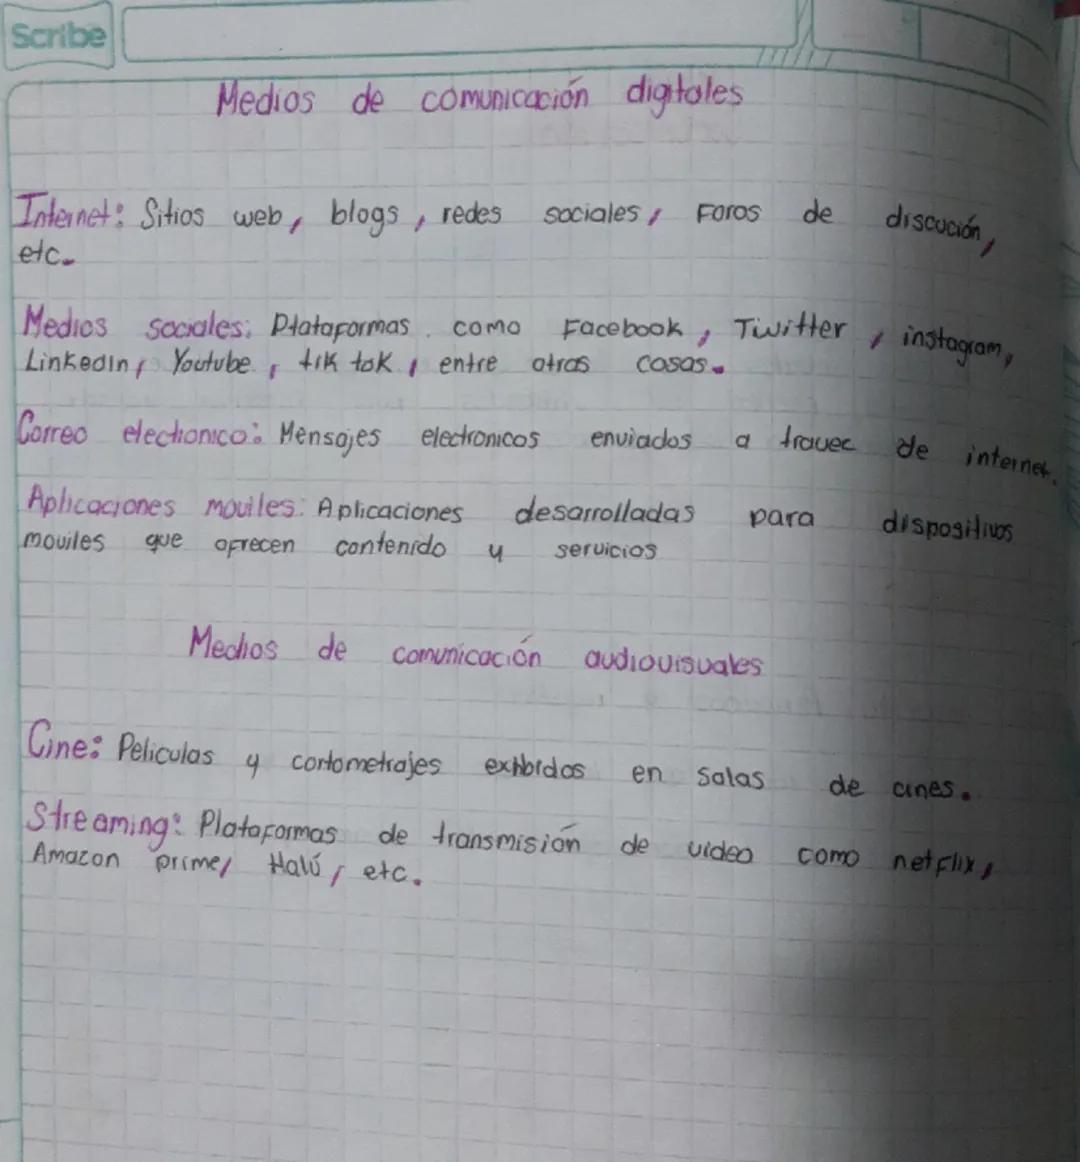 Scribe
Medios de comunicación digitales
Internet: Sitios web, blogs, redes sociales, Foros de discución,
etc.
Medios sociales: Plataformas como Facebook, Twitter, instagram,
LinkedIn, Youtube, tik tok, entre otras cosas.
Correo electronico: Mensajes electronicos enviados a travec de internet.
Aplicaciones moviles: Aplicaciones desarrolladas para dispositivos
moviles que ofrecen contenido y servicios
Medios de comunicación audiovisuales
Cine: Peliculas y cortometrajes exhbidos en salas de cines.
Streaming: Plataformas de transmisión de video como netflix,
Amazon prime, Halú, etc.